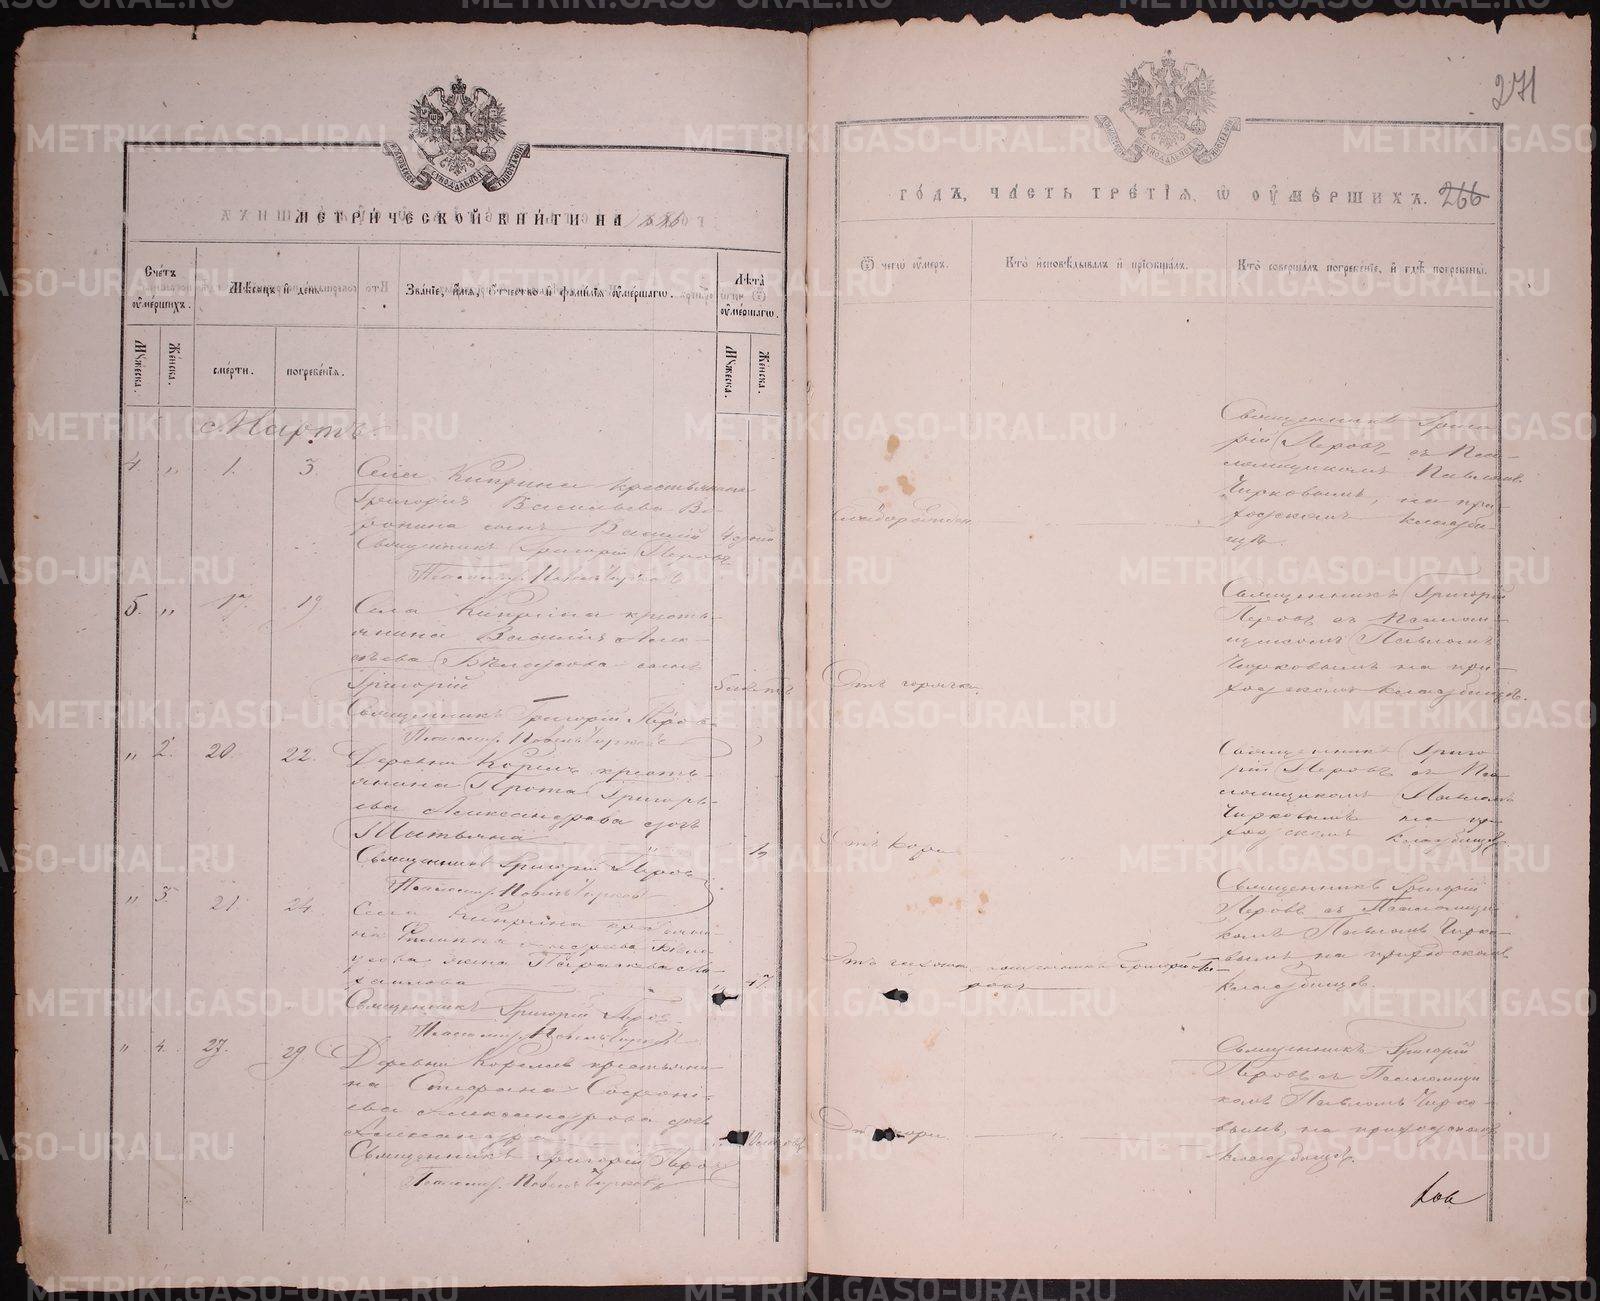 МЕТРИЧЕСКОЙ КНИГИ НА 1886
Счетъ оумершихъ.
Мѣсяцъ и день.
Званіе, имя, отчество и фамилія оумершагѡ.
Лѣта оумершагѡ.
Мужеска.
Женска.
смерти.
погребенія.
Мужеска.
Женска.
Мартъ.
4. „ 1. 3.
Села Киприна крестьянина
Григорія Васильева Во-
ронина сынъ Василій
Священникъ Григорій Перовъ
Псаломщ. Павелъ Чирковъ
5. „ 17. 19
Села Киприна кресть-
янина Василія Алек-
сѣева Бѣлоусова сынъ
Григорій
5 лѣтъ
Священникъ Григорій Перовъ
Псаломщ. Павелъ Чирковъ
„ 2. 20. 22.
Деревни Корелъ кресть-
янина Прота Григорь-
ева Александрова дочь
Татьяна
Священникъ Григорій Перовъ
Псаломщ. Павелъ Чирковъ
„ 3. 21. 24.
Села Киприна крестьяни-
на Филиппа Бѣло-
усова жена Параскева Ми-
хайлова
47
Священникъ Григорій Перовъ
Псаломщ. Павелъ Чирковъ
„ 4. 27. 29
Деревни Корелъ крестьяни-
на Стефана Софоні-
ева Александрова дочь
Александра
Священникъ Григорій Перовъ
Псаломщ. Павелъ Чирковъ
271
ГОДЪ, ЧАСТЬ ТРЕТІЯ, Ѡ ОУМЕРШИХЪ. 266
Ѿ чегѡ оумеръ.
Кто исповѣдывалъ и пріобщалъ.
Кто совершалъ погребеніе, и гдѣ погребены.
Священникъ Григо-
рій Перовъ съ Пса-
ломщикомъ Павломъ
Чирковымъ, на при-
ходскомъ кладби-
щѣ.
Отъ горячки
Священникъ Григорій
Перовъ съ Псалом-
щикомъ Павломъ
Чирковымъ на при-
ходскомъ кладбищѣ.
Отъ кори
Священникъ Григо-
рій Перовъ съ Пса-
ломщикомъ Павломъ
Чирковымъ на при-
ходскомъ кладбищѣ
Отъ
священникъ Григорій Пе-
ровъ
Священникъ Григорій
Перовъ съ Псаломщи-
комъ Павломъ Чирко-
вымъ на приходскомъ
кладбищѣ.
Отъ кори
Священникъ Григорій
Перовъ съ Псаломщи-
комъ Павломъ Чирко-
вымъ, на приходскомъ
кладбищѣ.
METRIKI.GASO-URAL.RU